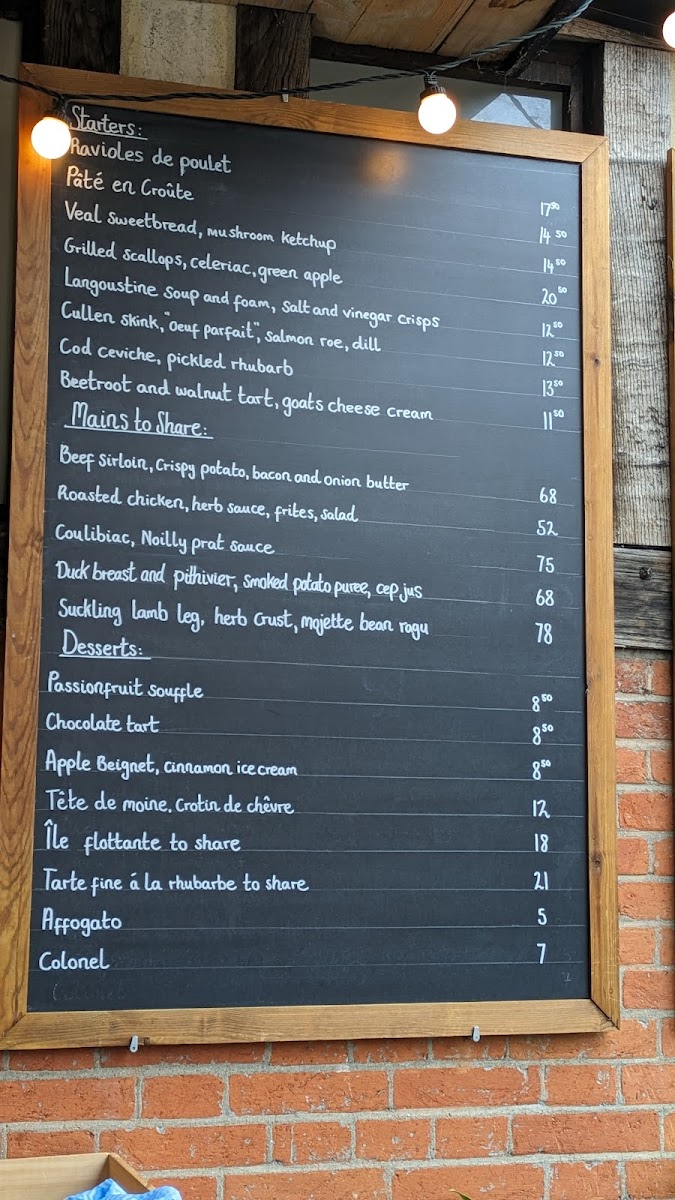 Starters:
Ravioles de poulet 17⁵⁰
Pâté en Croûte 14⁵⁰
Veal sweetbread, mushroom ketchup 14⁵⁰
Grilled scallops, celeriac, green apple 20⁵⁰
Langoustine soup and foam, salt and vinegar crisps 12⁵⁰
Cullen skink, "oeuf parfait", salmon roe, dill 12⁵⁰
Cod ceviche, pickled rhubarb 13⁵⁰
Beetroot and walnut tart, goats cheese cream 11⁵⁰
Mains to Share:
Beef sirloin, Crispy potato, bacon and onion butter 68
Roasted chicken, herb sauce, frites, salad 52
Coulibiac, Noilly prat sauce 75
Duck breast and pithivier, smoked potato puree, cep jus 68
Suckling lamb leg, herb crust, mojette bean ragu 78
Desserts:
Passionfruit souffle 8⁵⁰
Chocolate tart 8⁵⁰
Apple Beignet, cinnamon ice cream 8⁵⁰
Tête de moine, Crotin de chêvre 12
Île flottante to share 18
Tarte fine á la rhubarbe to share 21
Affogato 5
Colonel 7